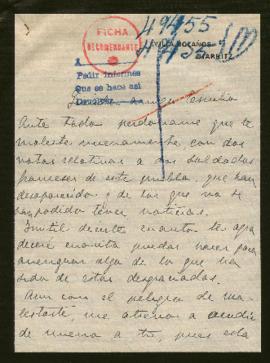 FICHA
RECOMENDANTE
49455
VILLA BOLAÑOS
BIARRITZ
Pedir informes
Que se hace así
Ante todo perdóname que te
moleste nuevamente, con dos
notas relativas a dos soldados
franceses de este pueblo, que han
desaparecido y de los que no se
ha podido tener noticias.
Inutil decirte cuanto te agra
deceré cuanto puedas hacer para
averiguar algo de lo que ha
sido de estos desgraciados.
Aun con el peligro de mo-
lestarte, me atrevo a acudir
de nuevo a tí, pues esta